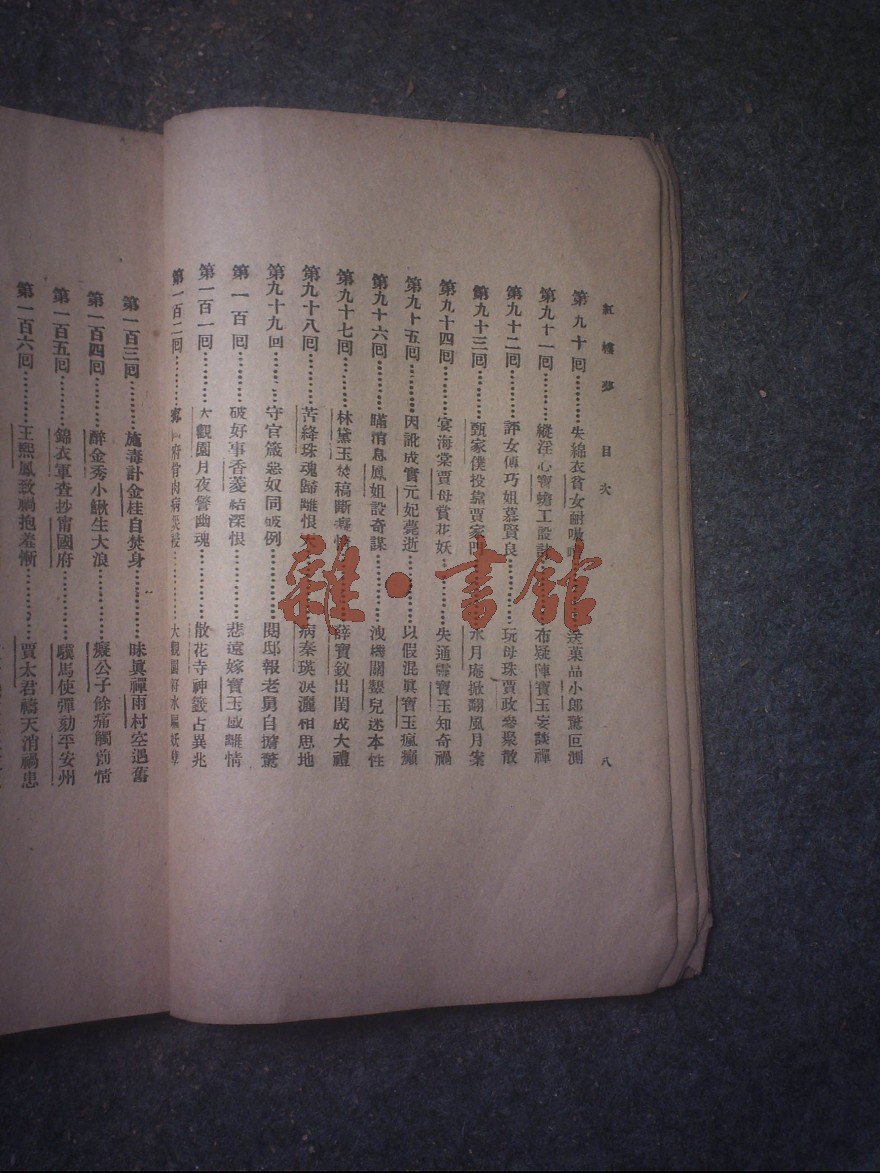 紅樓夢 目次 八
第九十回………失綿衣貧女耐嗷 送菓品小郎驚叵測
第九十一回………縱淫心寶蟾工設 布疑陣寶玉妄談禪
第九十二回………評女傳巧姐慕賢良 玩母珠賈政參聚散
第九十三回………甄家僕投靠賈家門 水月庵掀翻風月案
第九十四回………宴海棠賈母賞花妖………失通靈寶玉知奇禍
第九十五回………因訛成實元妃薨逝………以假混眞寶玉瘋癲
第九十六回………瞞消息鳳姐設奇謀………洩機關顰兒迷本性
第九十七回………林黛玉焚稿斷癡 薛寶釵出閨成大禮
第九十八回………苦絳珠魂歸離恨 病 瑛淚灑相思地
第九十九回………守官箴惡奴同破例………閱邸報老舅自擔驚
第一百回………破好事香菱結深恨………悲遠嫁寶玉感離情
第一百一回………大觀園月夜警幽魂………散花寺神籤占異兆
第一百二回………國府骨肉病災祲………大觀園符水驅妖孽
第一百三回………施毒計金桂自焚身………昧眞禪雨村空遇舊
第一百四回………醉金剛小鰍生大浪………癡公子餘痛觸前情
第一百五回………錦衣軍查抄甯國府………驄馬使彈劾平安州
第一百六回………王熙鳳致禍抱羞慚………賈太君禱天消禍患
雜·書館